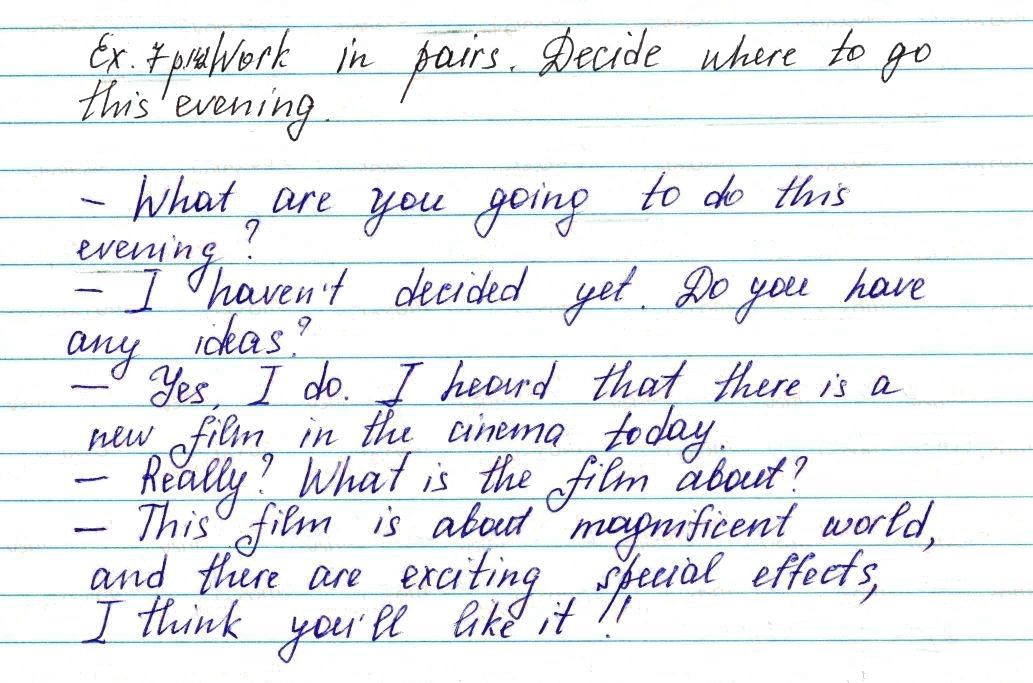 Ex. 7 Work in pairs. Decide where to go
this evening.
– What are you going to do this
evening?
– I haven't decided yet. Do you have
any ideas?
– Yes, I do. I heard that there is a
new film in the cinema today.
– Really? What is the film about?
– This film is about magnificent world,
and there are exciting special effects,
I think you'll like it!!